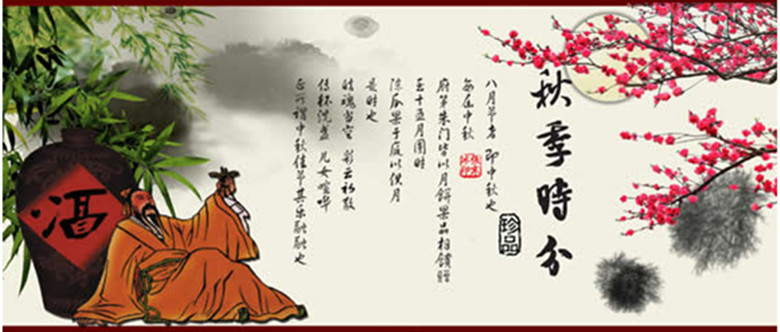 秋季時分
珍品
八月节者 即中秋也
每届中秋
府第朱门皆以月餅果品相饋贈
至十五月圆时
陈瓜果于庭以供月
是时也
皓魂当空 彩云初散
传杯洗盏 儿女喧哗
正所谓中秋佳节其乐融融也
酒